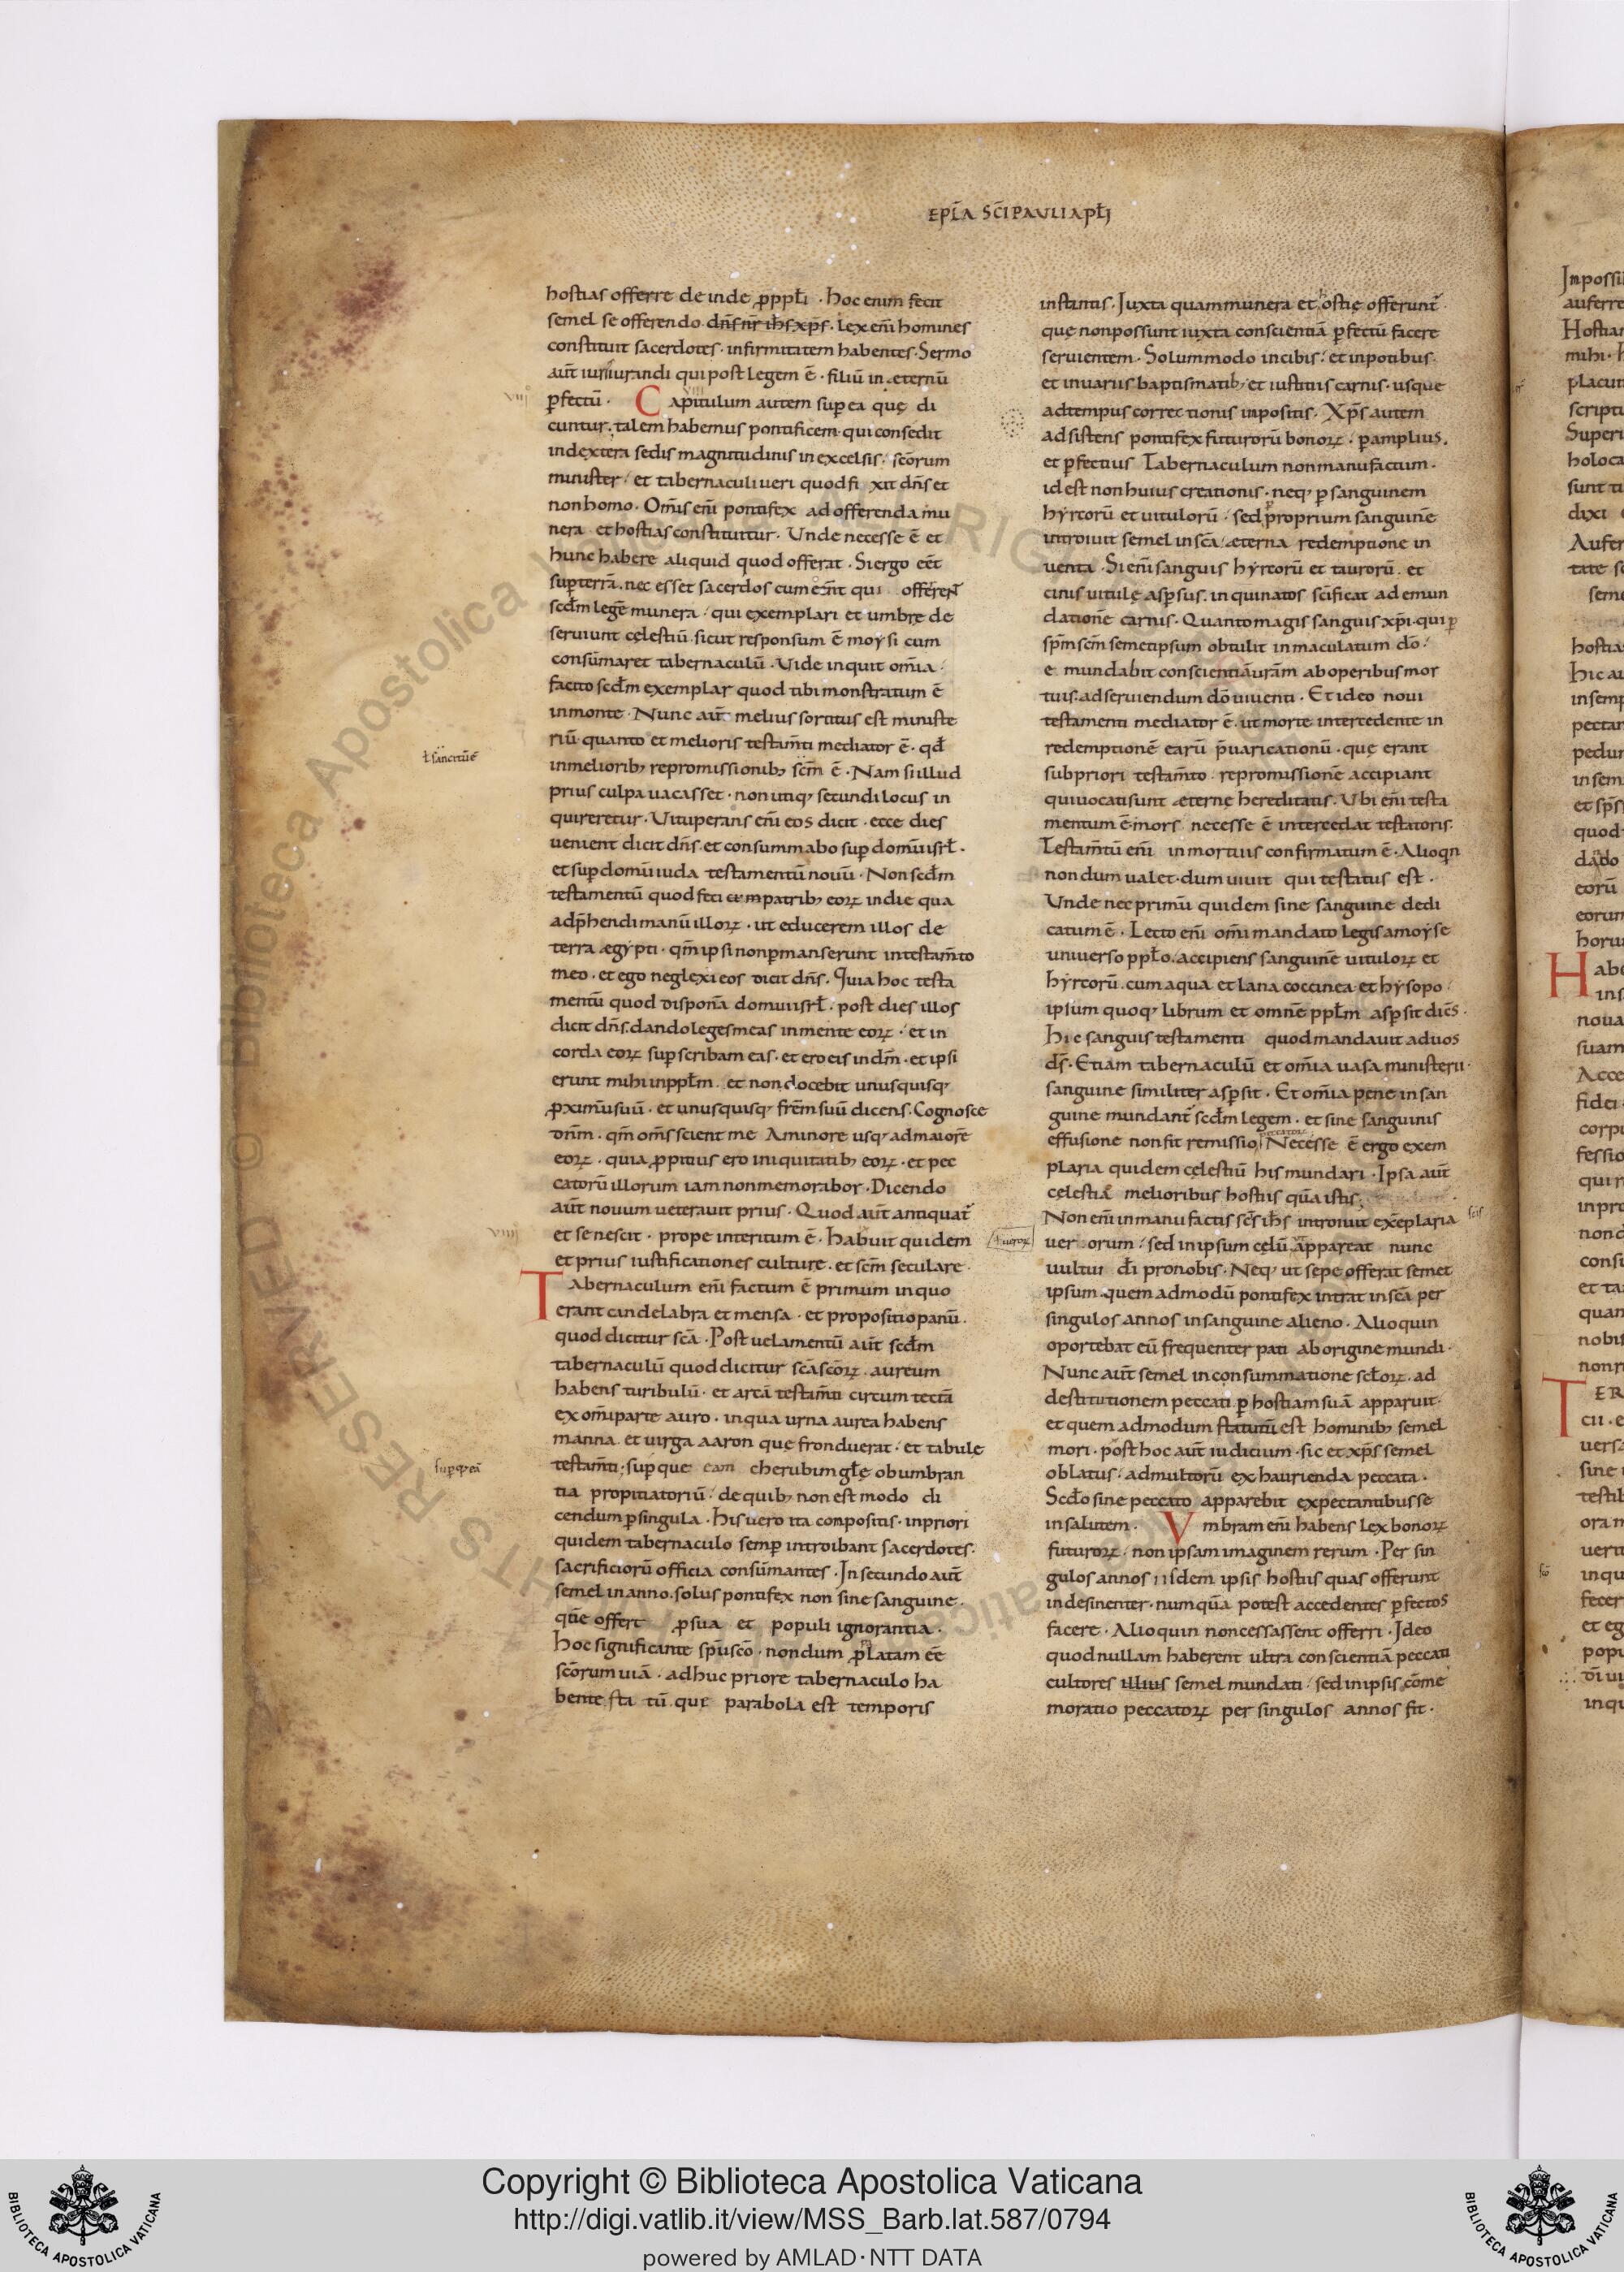 EPL̄A SC̄I PAVLI APŁI
hostias offerre deinde ꝓ ppłi · hoc enim fecit
semel se offerendo. dn̄s nr̄ ih̄s xp̄s. Lex enī homines
constituit sacerdotes · infirmitatem habentes. Sermo
aūt iurisiurandi qui post legem ē · filiū in æternū
ꝑfectū · Capitulum autem suꝑ ea quę di
cuntur. talem habemus pontificem. qui consedit
in dextera sedis magnitudinis in excelsis. scōrum
minister. et tabernaculi ueri quod fi xit dn̄s et
non homo. Omīs enī pontifex ad offerenda mu
nera et hostias constituitur. Unde necesse ē et
hunc habere aliquid quod offerat. Si ergo eēt
suꝑ terrā. nec esset sacerdos cum essent qui offerrent
scdm̄ legē munera. qui exemplari et umbrę de
seruiunt cęlestiū. sicut responsum ē moysi cum
consūmaret tabernaculū. Uide inquit omīa
facito scdm̄ exemplar quod tibi monstratum ē
in monte. Nunc aūt melius sortitus est ministe
riū. quanto et melioris testam̄ti mediator ē. qđ
in meliorib; repromissionib; scm̄ ē. Nam si illud
prius culpa uacasset. non utiq; secundi locus in
quireretur. Uituperans enī eos dicit. ecce dies
uenient dicit dn̄s. et consummabo suꝑ domū isrł.
et suꝑ domū iuda testamentū nouū. Non scdm̄
testamentū quod feci cum patrib; eoꝝ in die qua
adp̄hendi manū illoꝝ. ut educerem illos de
terra ægypti. qm̄ ipsi non ꝑmanserunt in testam̄to
meo. et ego neglexi eos dicit dn̄s. Quia hoc testa
mentū quod disponā domui isrł. post dies illos
dicit dn̄s. dando leges meas in mente eoꝝ. et in
corda eoꝝ suꝑscribam eas. et ero eis in dm̄. et ipsi
erunt mihi in ppłm. et non docebit unusquisq;
ꝓximū suū. et unusquisq; frēm suū dicens. Cognosce
dn̄m. qm̄ omīs scient me A minore usq; ad maiorē
eoꝝ. quia ꝓpitius ero iniquitatib; eoꝝ. et pec
catorū illorum iam non memorabor. Dicendo
aūt nouum ueterauit prius. Quod aūt antiquat̄
et senescit. prope interitum ē. habuit quidem
et prius iustificationes culturę. et scm̄ seculare.
Tabernaculum enī factum ē primum in quo
erant candelabra et mensa. et propositio panū.
quod dicitur scā. Post uelamentū aūt scdm̄
tabernaculū quod dicitur scā scōꝝ. aureum
habens turibulū. et arcā testam̄ti circum tectā
ex omī parte auro. in qua urna aurea habens
manna. et uirga aaron quę fronduerat. et tabulę
testam̄ti; suꝑ que eam cherubim głę obumbran
tia propitiatoriū. de quib; non est modo di
cendum ꝑ singula. His uero ita compositis. in priori
quidem tabernaculo semꝑ introibant sacerdotes.
sacrificiorū officia consūmantes. In secundo aūt
semel in anno. solus pontifex non sine sanguine.
quē offert ꝓ sua et populi ignorantia.
Hoc significante spū scō. nondum ꝓlatam eē
scōrum uiā. adhuc priore tabernaculo ha
bente statū. quę parabola est temporis
ł sancitū ē
suꝑq; eā
instantis. Iuxta quam munera et hostię offerunt̄.
quę non possunt iuxta conscientiā ꝑfectū facere
seruientem. Solummodo in cibis. et in potibus
et in uariis baptismatib; et iustitiis carnis. usque
ad tempus correctionis impositis. Xp̄s autem
adsistens pontifex futurorū bonoꝝ. ꝑ amplius.
et ꝑfectius Tabernaculum non manufactum.
id est non huius creationis. neq; ꝑ sanguinem
hyrcorū et uitulorū. sed ꝑ proprium sanguinē
introiuit semel in scā. æterna redemptione in
uenta. Si enī sanguis hyrcorū et taurorū. et
cinis uitulę asꝑsus. inquinatos scīficat ad emun
dationē carnis. Quanto magis sanguis xp̄i. qui ꝑ
spm̄ scm̄ semetipsum obtulit inmaculatum dō.
e mundabit conscientiā urām ab operibus mor
tuis. ad seruiendum dō uiuenti. Et ideo noui
testamenti mediator ē. ut morte intercedente in
redemptionē earū p̄uaricationū. quę erant
sub priori testam̄to. repromissionē accipiant
qui uocati sunt æternę hereditatis. Ubi enī testa
mentum ē. mors necesse ē intercedat testatoris.
Testam̄tū enī in mortuis confirmatum ē. Alioqn
nondum ualet. dum uiuit qui testatus est.
Unde nec primū quidem sine sanguine dedi
catum ē. Lecto enī omī mandato legis a moyse
uniuerso ppło. accipiens sanguinē uituloꝝ et
hyrcorū. cum aqua et lana coccinea et hysopo.
ipsum quoq; librum et omnē ppłm asꝑsit dicēs.
Hic sanguis testamenti quod mandauit ad uos
ds̄. Etiam tabernaculū et omīa uasa ministerii
sanguine similiter asꝑsit. Et omīa pene in san
guine mundant̄ scdm̄ legem. et sine sanguinis
effusione non fit remissio. Necesse ē ergo exem
plaria quidem cęlestiū his mundari. Ipsa aūt
cęlestia melioribus hostiis quā istis.
Non enī in manufactis scīs ih̄s introiuit exēplaria
uerorum. sed in ipsum cęlū. appareat nunc
uultui di pro nobis. Neq; ut sepe offerat semet
ipsum. quemadmodū pontifex intrat in scā per
singulos annos in sanguine alieno. Alioquin
oportebat eū frequenter pati ab origine mundi.
Nunc aūt semel in consummatione scłoꝝ. ad
destitutionem peccati ꝑ hostiam suā apparuit.
et quemadmodum statutū est hominib; semel
mori. post hoc aūt iudicium. sic et xp̄s semel
oblatus. ad multorū exhaurienda peccata.
Scdo sine peccato apparebit expectantibus se
in salutem. Vmbram enī habens Lex bonoꝝ
futuroꝝ. non ipsam imaginem rerum. Per sin
gulos annos iisdem ipsis hostiis quas offerunt
indesinenter. numquā potest accedentes ꝑfectos
facere. Alioquin non cessassent offerri. Ideo
quod nullam haberent ultra conscientiā peccati
cultores illius semel mundati. sed in ipsis cōme
moratio peccatoꝝ per singulos annos fit.
Copyright © Biblioteca Apostolica Vaticana
http://digi.vatlib.it/view/MSS_Barb.lat.587/0794
powered by AMLAD·NTT DATA
BIBLIOTECA APOSTOLICA VATICANA
BIBLIOTECA APOSTOLICA VATICANA